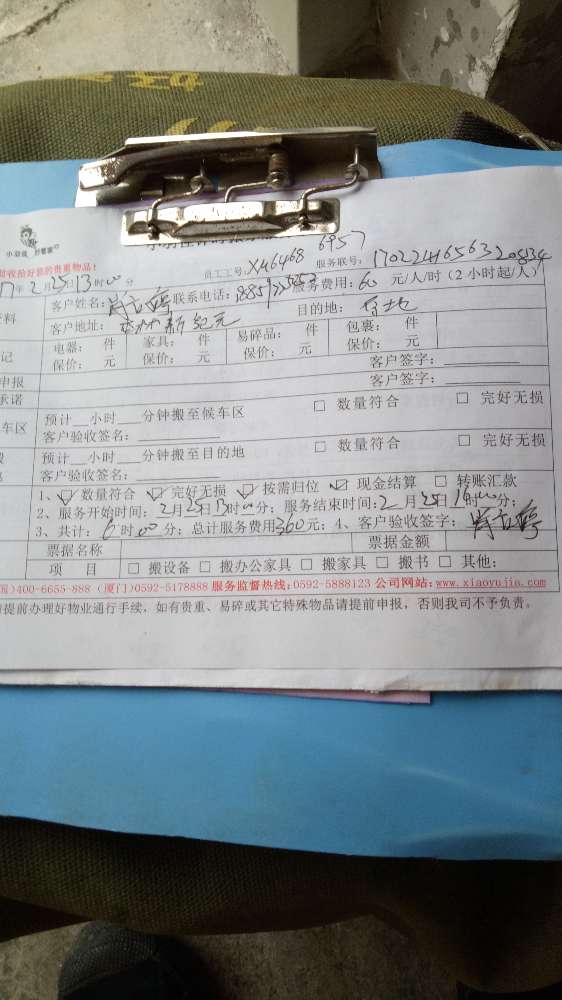 小羽佳 好管家
收拾好您的贵重物品！
员工工号：XM6468 6957 服务联号：
年2月25日13时00分
客户姓名： 联系电话： 服务费用：60 元/人/时（2小时起/人）
客户地址： 新纪元 目的地：
电器： 件 家具： 件 易碎品： 件 包裹： 件
保价： 元 保价： 元 保价： 元 保价： 元
申报 客户签字：
承诺 客户签字：
车区 预计__小时___分钟搬至候车区 □ 数量符合 □ 完好无损
客户验收签名：
预计__小时___分钟搬至目的地 □ 数量符合 □ 完好无损
客户验收签名：
1、☑ 数量符合 ☑ 完好无损 ☑ 按需归位 ☑ 现金结算 □ 转账汇款
2、服务开始时间：2月25日13时00分；服务结束时间：2月25日19时00分；
3、共计：6时00分；总计服务费用360元；4、客户验收签字：
票据名称 票据金额
项 目 □ 搬设备 □ 搬办公家具 □ 搬家具 □ 搬书 □ 其他：
)400-6655-888 (厦门)0592-5178888 服务监督热线：0592-5888123 公司网站：www.xiaoyujia.com
提前办理好物业通行手续，如有贵重、易碎或其它特殊物品请提前申报，否则我司不予负责。